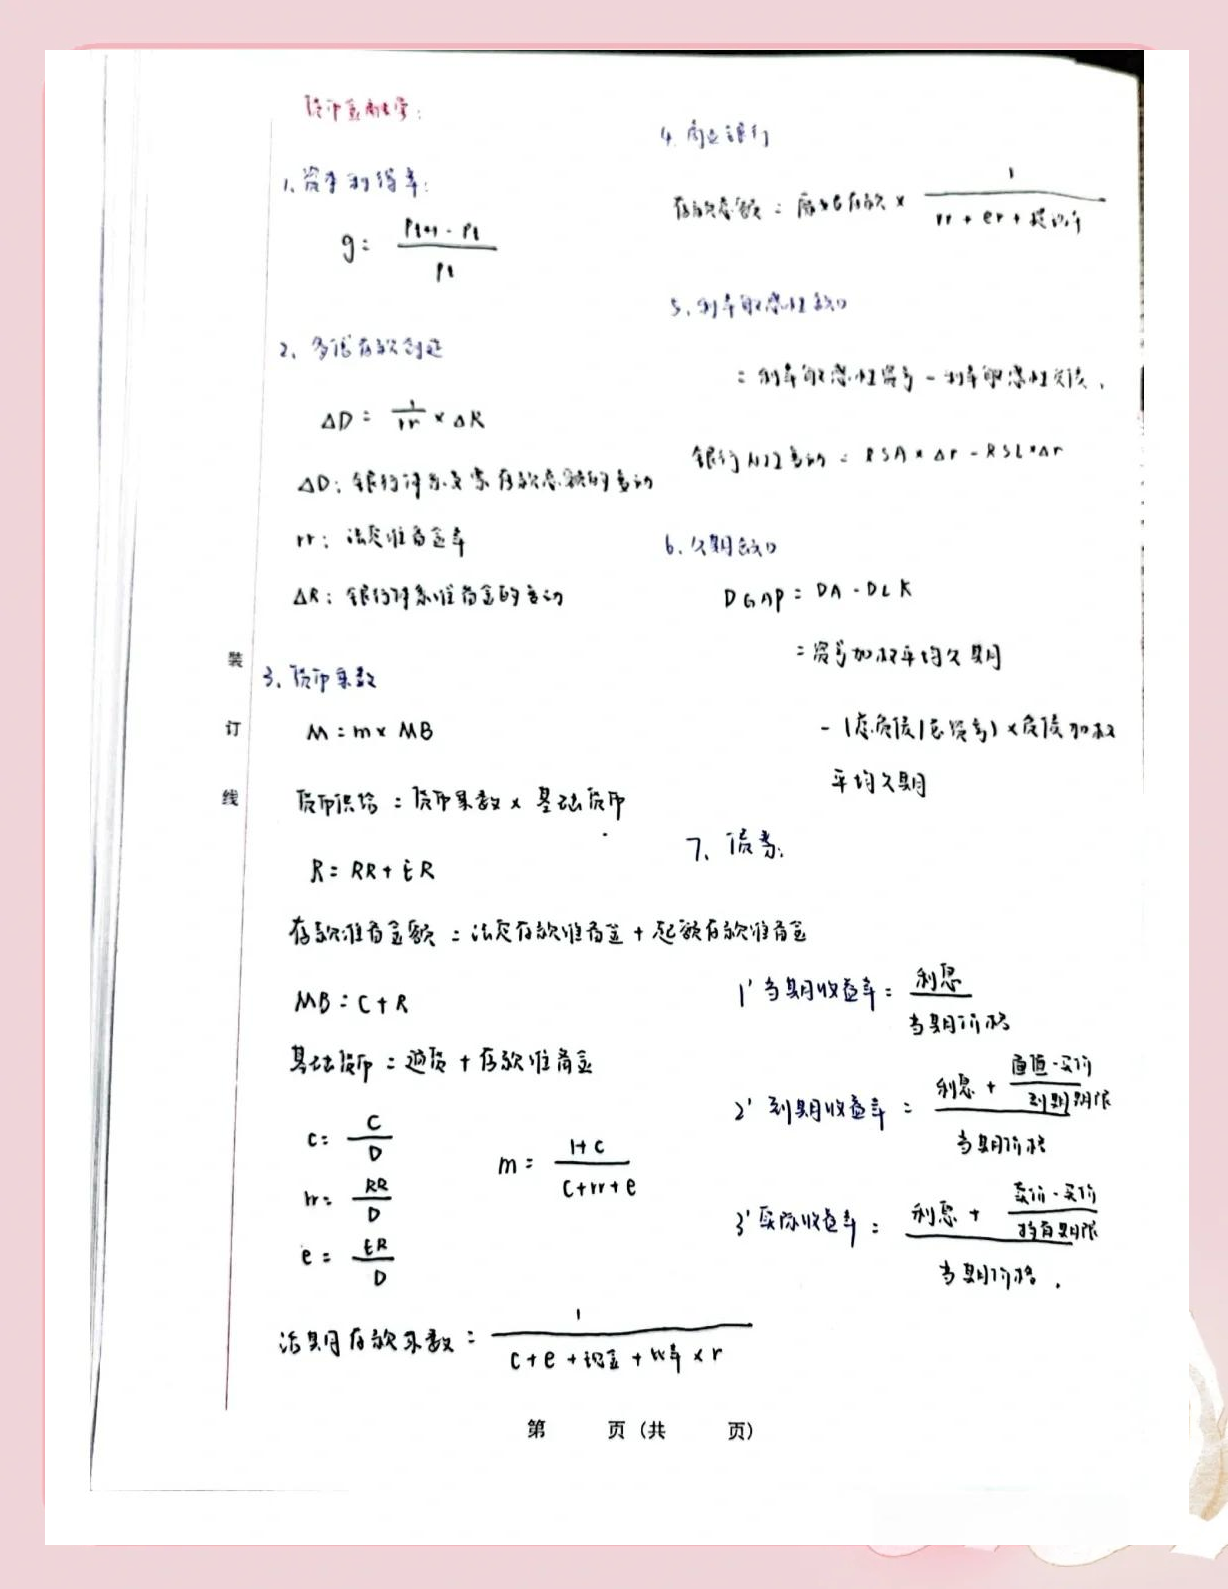 货币金融学:
1、资本利得率:
g = (Pt+1 - Pt) / Pt
2、多倍存款创造
ΔD = 1/rr × ΔR
ΔD: 银行体系支票存款总额的变动
rr: 法定准备金率
ΔR: 银行体系准备金的变动
3、货币乘数
M = m × MB
货币供给 = 货币乘数 × 基础货币
R = RR + ER
存款准备金额 = 法定存款准备金 + 超额存款准备金
MB = C + R
基础货币 = 通货 + 存款准备金
c = C/D
rr = RR/D
e = ER/D
m = (1+c) / (c+rr+e)
活期存款乘数 = 1 / (c + e + 现金 + 比率 × r)
4. 商业银行
存款总额 = 原始存款 × 1 / (rr + er + 提现率)
5、利率敏感性缺口
= 利率敏感性资产 - 利率敏感性负债.
银行NII变动 = RSA × Δr - RSL × Δr
6、久期缺口
DGAP = DA - DLK
= 资产加权平均久期
- (总负债/总资产) × 负债加权
平均久期
7、债券:
1' 当期收益率 = 利息 / 当期价格
2' 到期收益率 = (利息 + (面值-买价)/到期期限) / 当期价格
3' 实际收益率 = (利息 + (卖价-买价)/持有期限) / 当期价格.
装
订
线
第 页 (共 页)